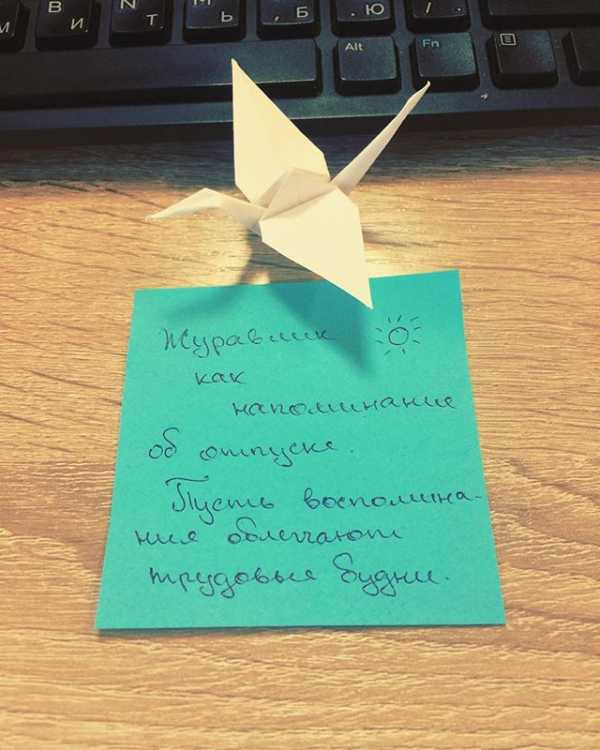 М
В
И
N
Т
Ь
, Б
. Ю
/ .
Alt
Fn
Журавлик
как
напоминание
об отпуске.
Пусть воспомина-
ния облегчают
трудовые будни.